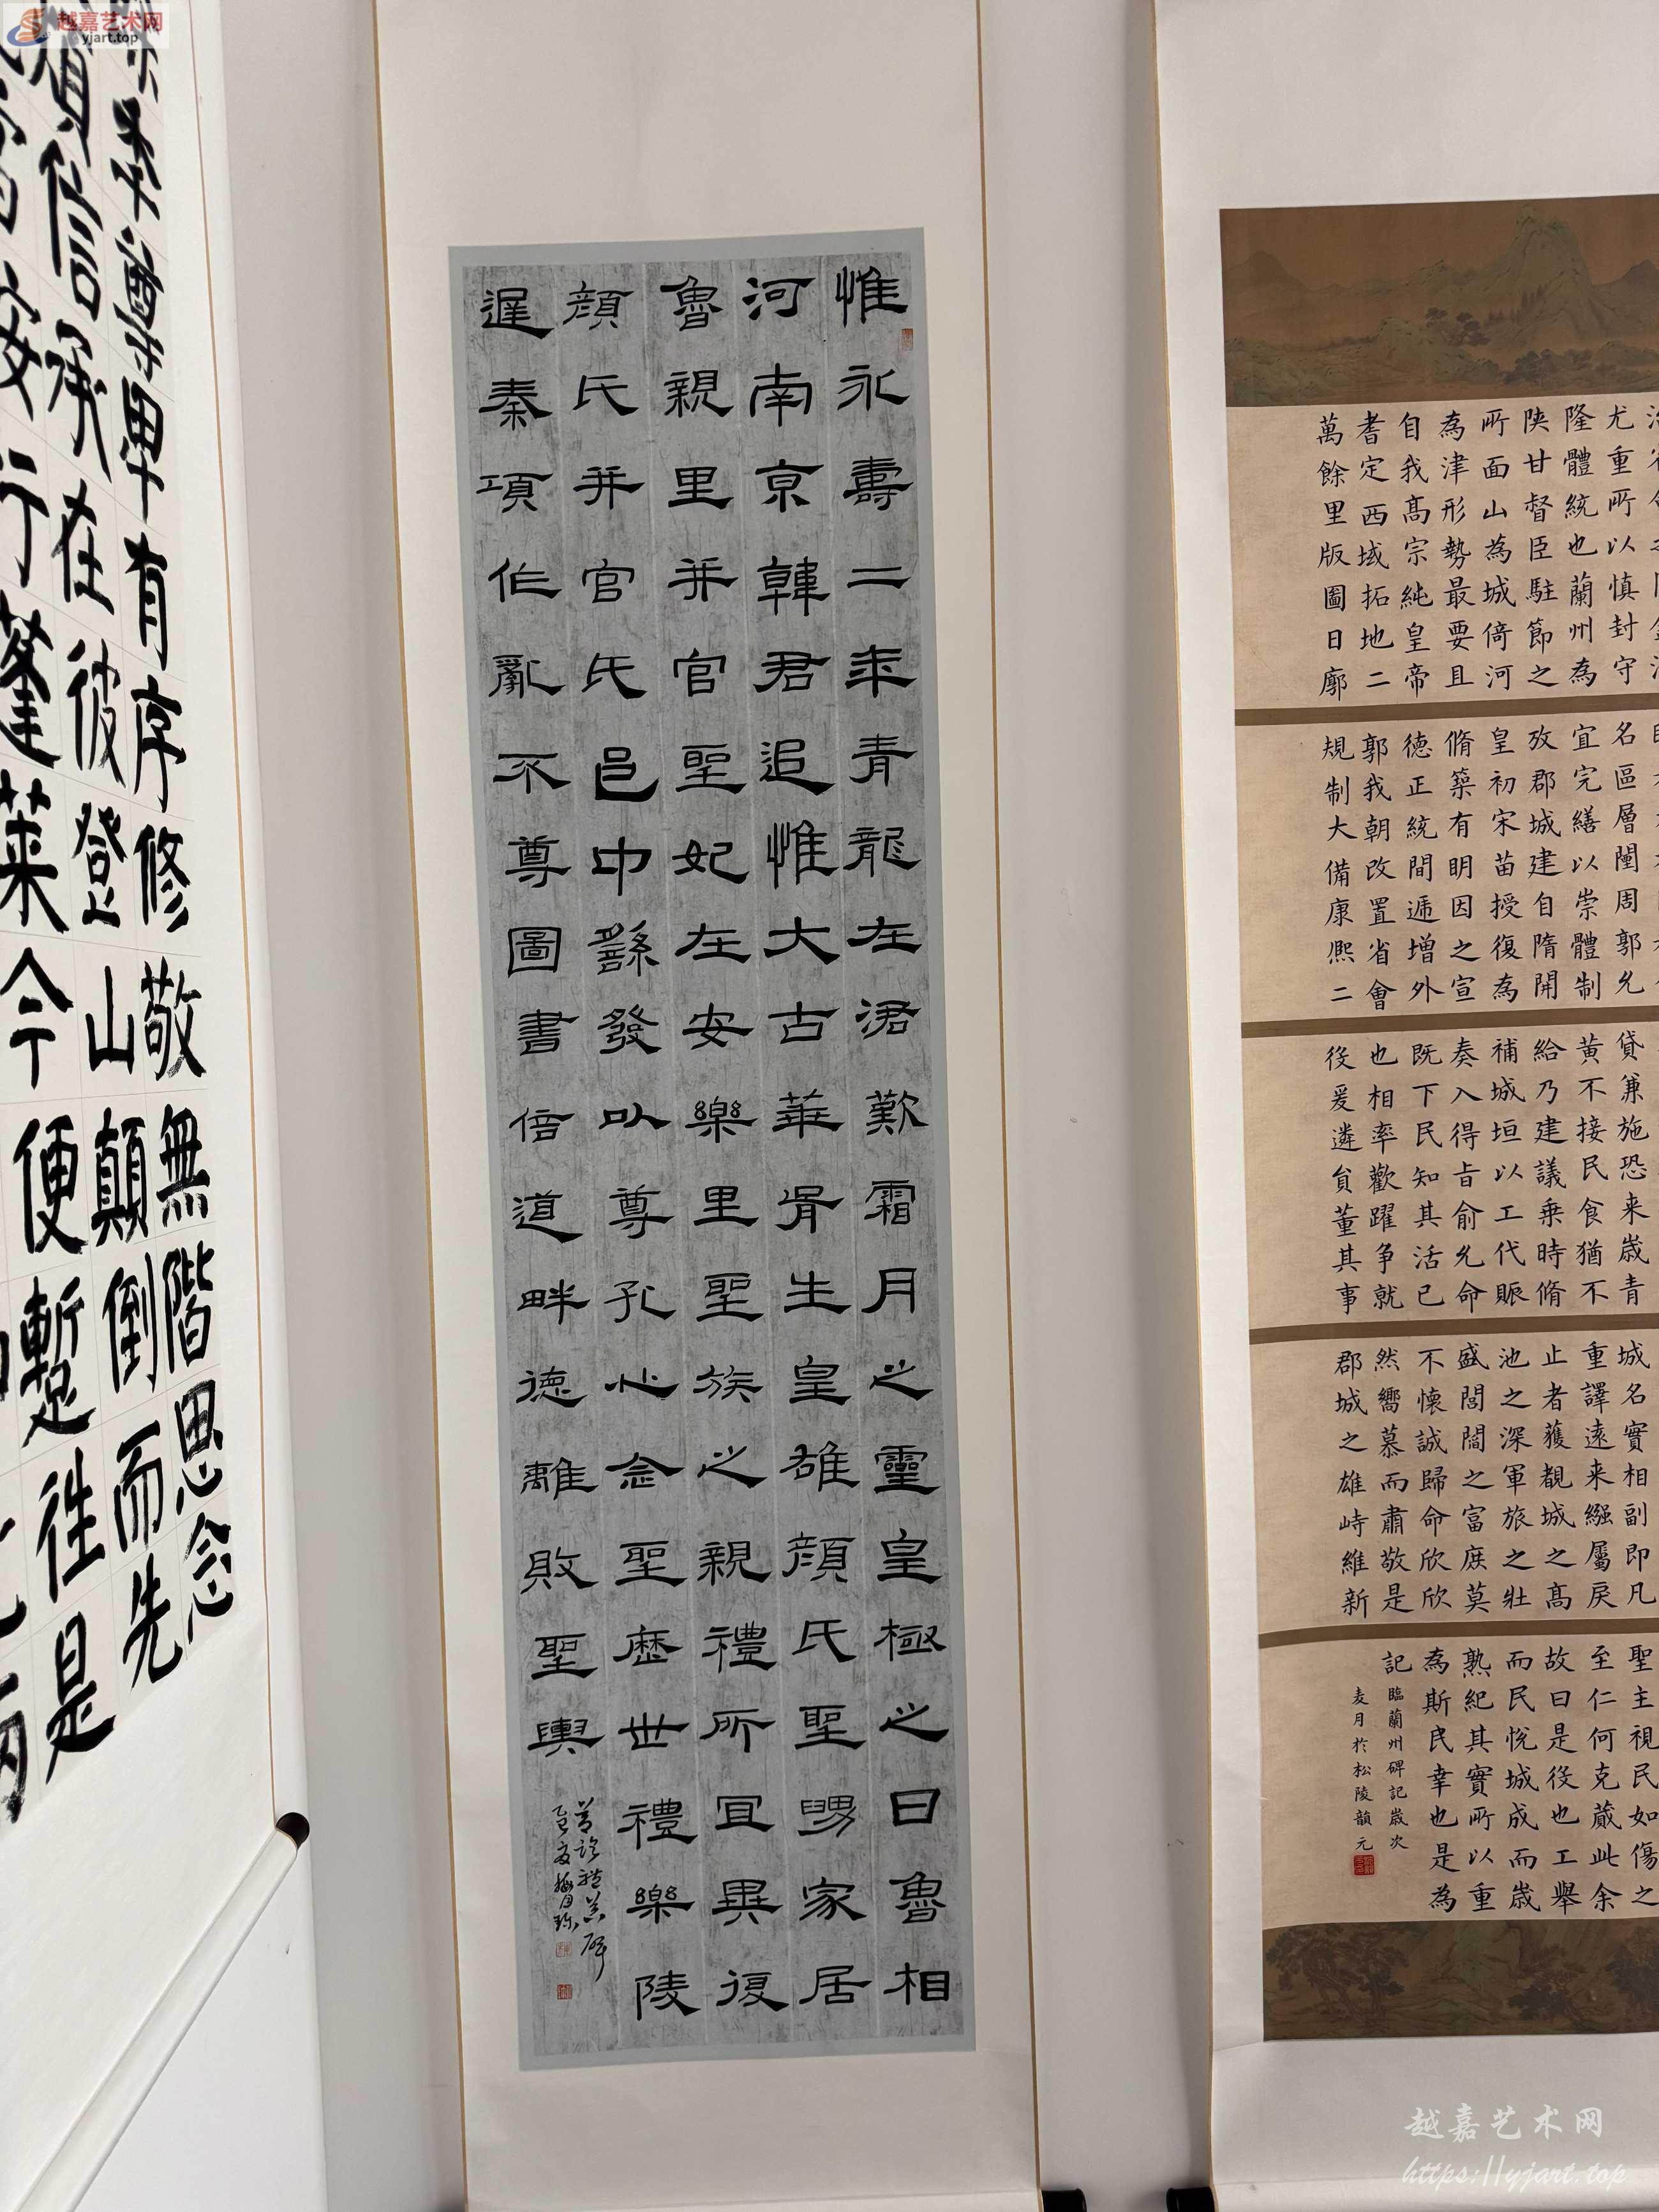 越嘉艺术网
yjart.top
尊卑有序修敬無階思念
信承在彼登山顛倒而先
安行蓬萊今便蹔往是
惟永壽二年青龍在涒歎霜月之靈皇極之日魯相
河南京韓君追惟大古華胥生皇雄顏氏聖舅家居
魯親里并官聖妃在安樂里聖族之親禮所宜異復
顏氏并官氏邑中繇發以尊孔心念聖歷世禮樂陵
遲秦項作亂不尊圖書倍道畔德離敗聖輿
尤重所以慎封守
隆體統也蘭州為
陝甘督臣駐節之
所面山為城倚河
為津形勢最要且
自我髙宗純皇帝
耆定西域拓地二
萬餘里版圖日廓
名區層闉周郭允
宜完繕以崇體制
攷郡城建自隋開
皇初宋苗授復為
脩築有明因之宣
德正統間遞增外
郭我朝改置省會
規制大備康熙二
貸兼施恐来歲青
黃不接民食猶不
給乃建議乗時脩
補城垣以工代賑
奏入得旨俞允命
既下民知其活己
也相率歡躍争就
役爰遴貟董其事
城名實相副即凡
重譯遠来繈屬戾
止者獲覩城之髙
池之深軍旅之壯
盛閭閻之富庶莫
不懷誠歸命欣欣
然嚮慕而肅敬是
郡城之雄峙維新
聖主視民如傷之
至仁何克蕆此余
故曰是役也工舉
而民悅城成而歲
熟紀其實所以重
為斯民幸也是為
記
臨蘭州碑記歲次
麦月於松陵韻元
越嘉艺术网
https://yjart.top